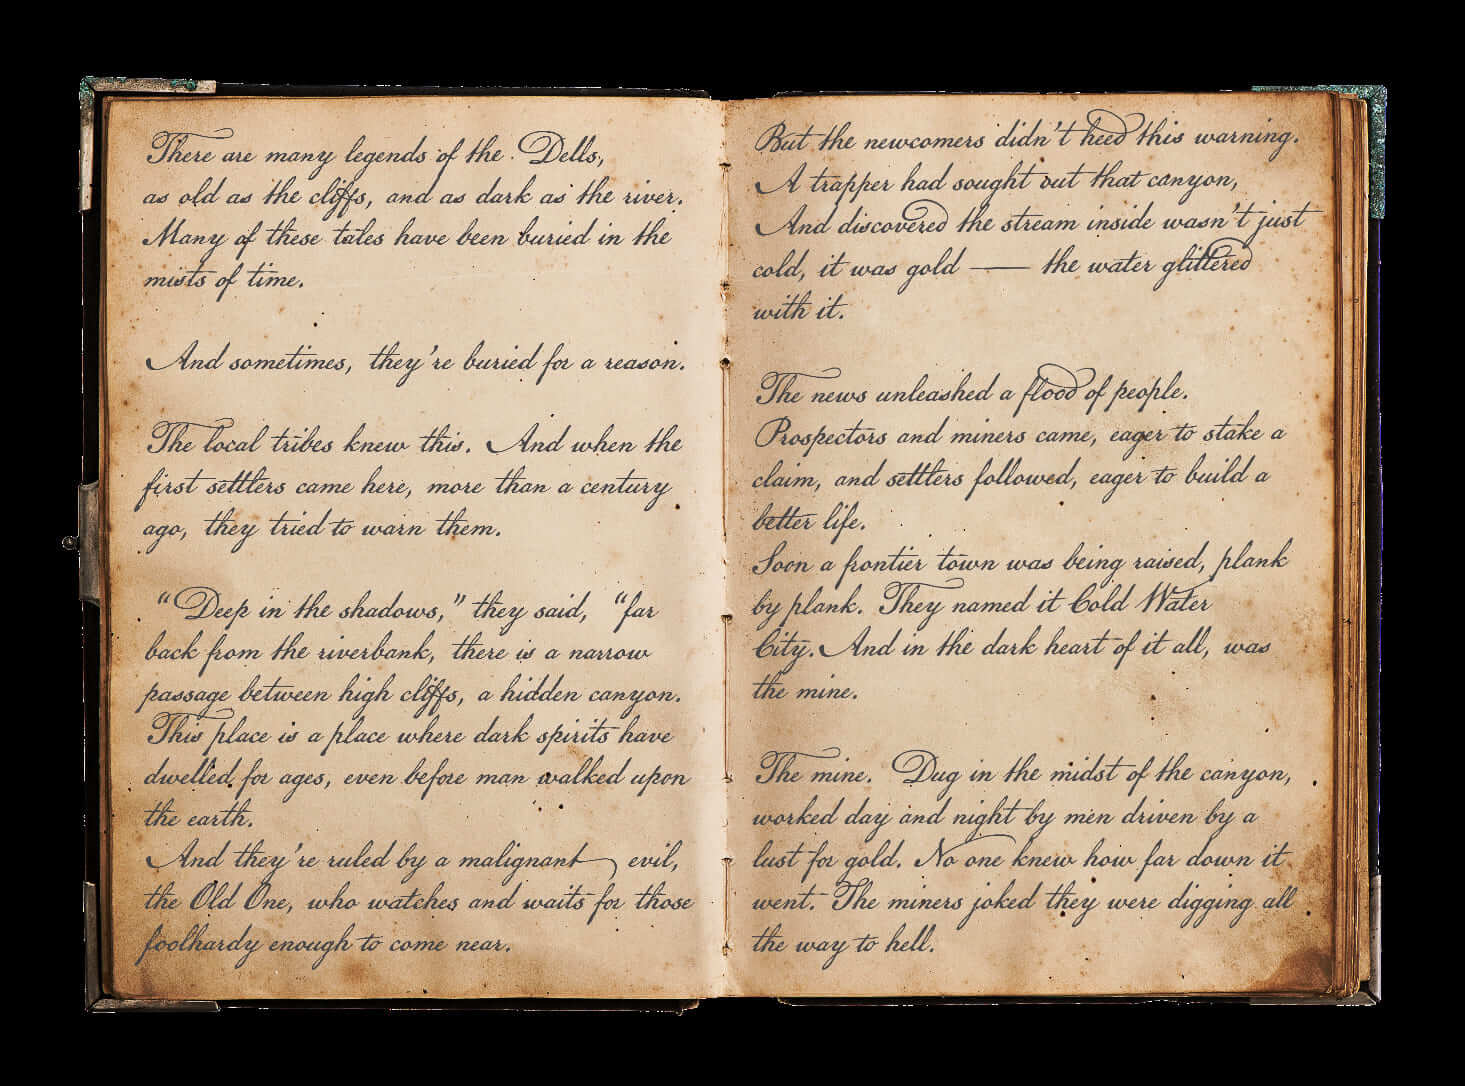 There are many legends of the Dells,
as old as the cliffs, and as dark as the river.
Many of these tales have been buried in the
mists of time.
And sometimes, they're buried for a reason.
The local tribes knew this. And when the
first settlers came here, more than a century
ago, they tried to warn them.
“Deep in the shadows,” they said, “far
back from the riverbank, there is a narrow
passage between high cliffs, a hidden canyon.
This place is a place where dark spirits have
dwelled for ages, even before man walked upon
the earth.
And they're ruled by a malignant evil,
the Old One, who watches and waits for those
foolhardy enough to come near.
But the newcomers didn't heed this warning.
A trapper had sought out that canyon,
And discovered the stream inside wasn't just
cold, it was gold — the water glittered
with it.
The news unleashed a flood of people.
Prospectors and miners came, eager to stake a
claim, and settlers followed, eager to build a
better life.
Soon a frontier town was being raised, plank
by plank. They named it Cold Water
City. And in the dark heart of it all, was
the mine.
The mine. Dug in the midst of the canyon,
worked day and night by men driven by a
lust for gold. No one knew how far down it
went. The miners joked they were digging all
the way to hell.